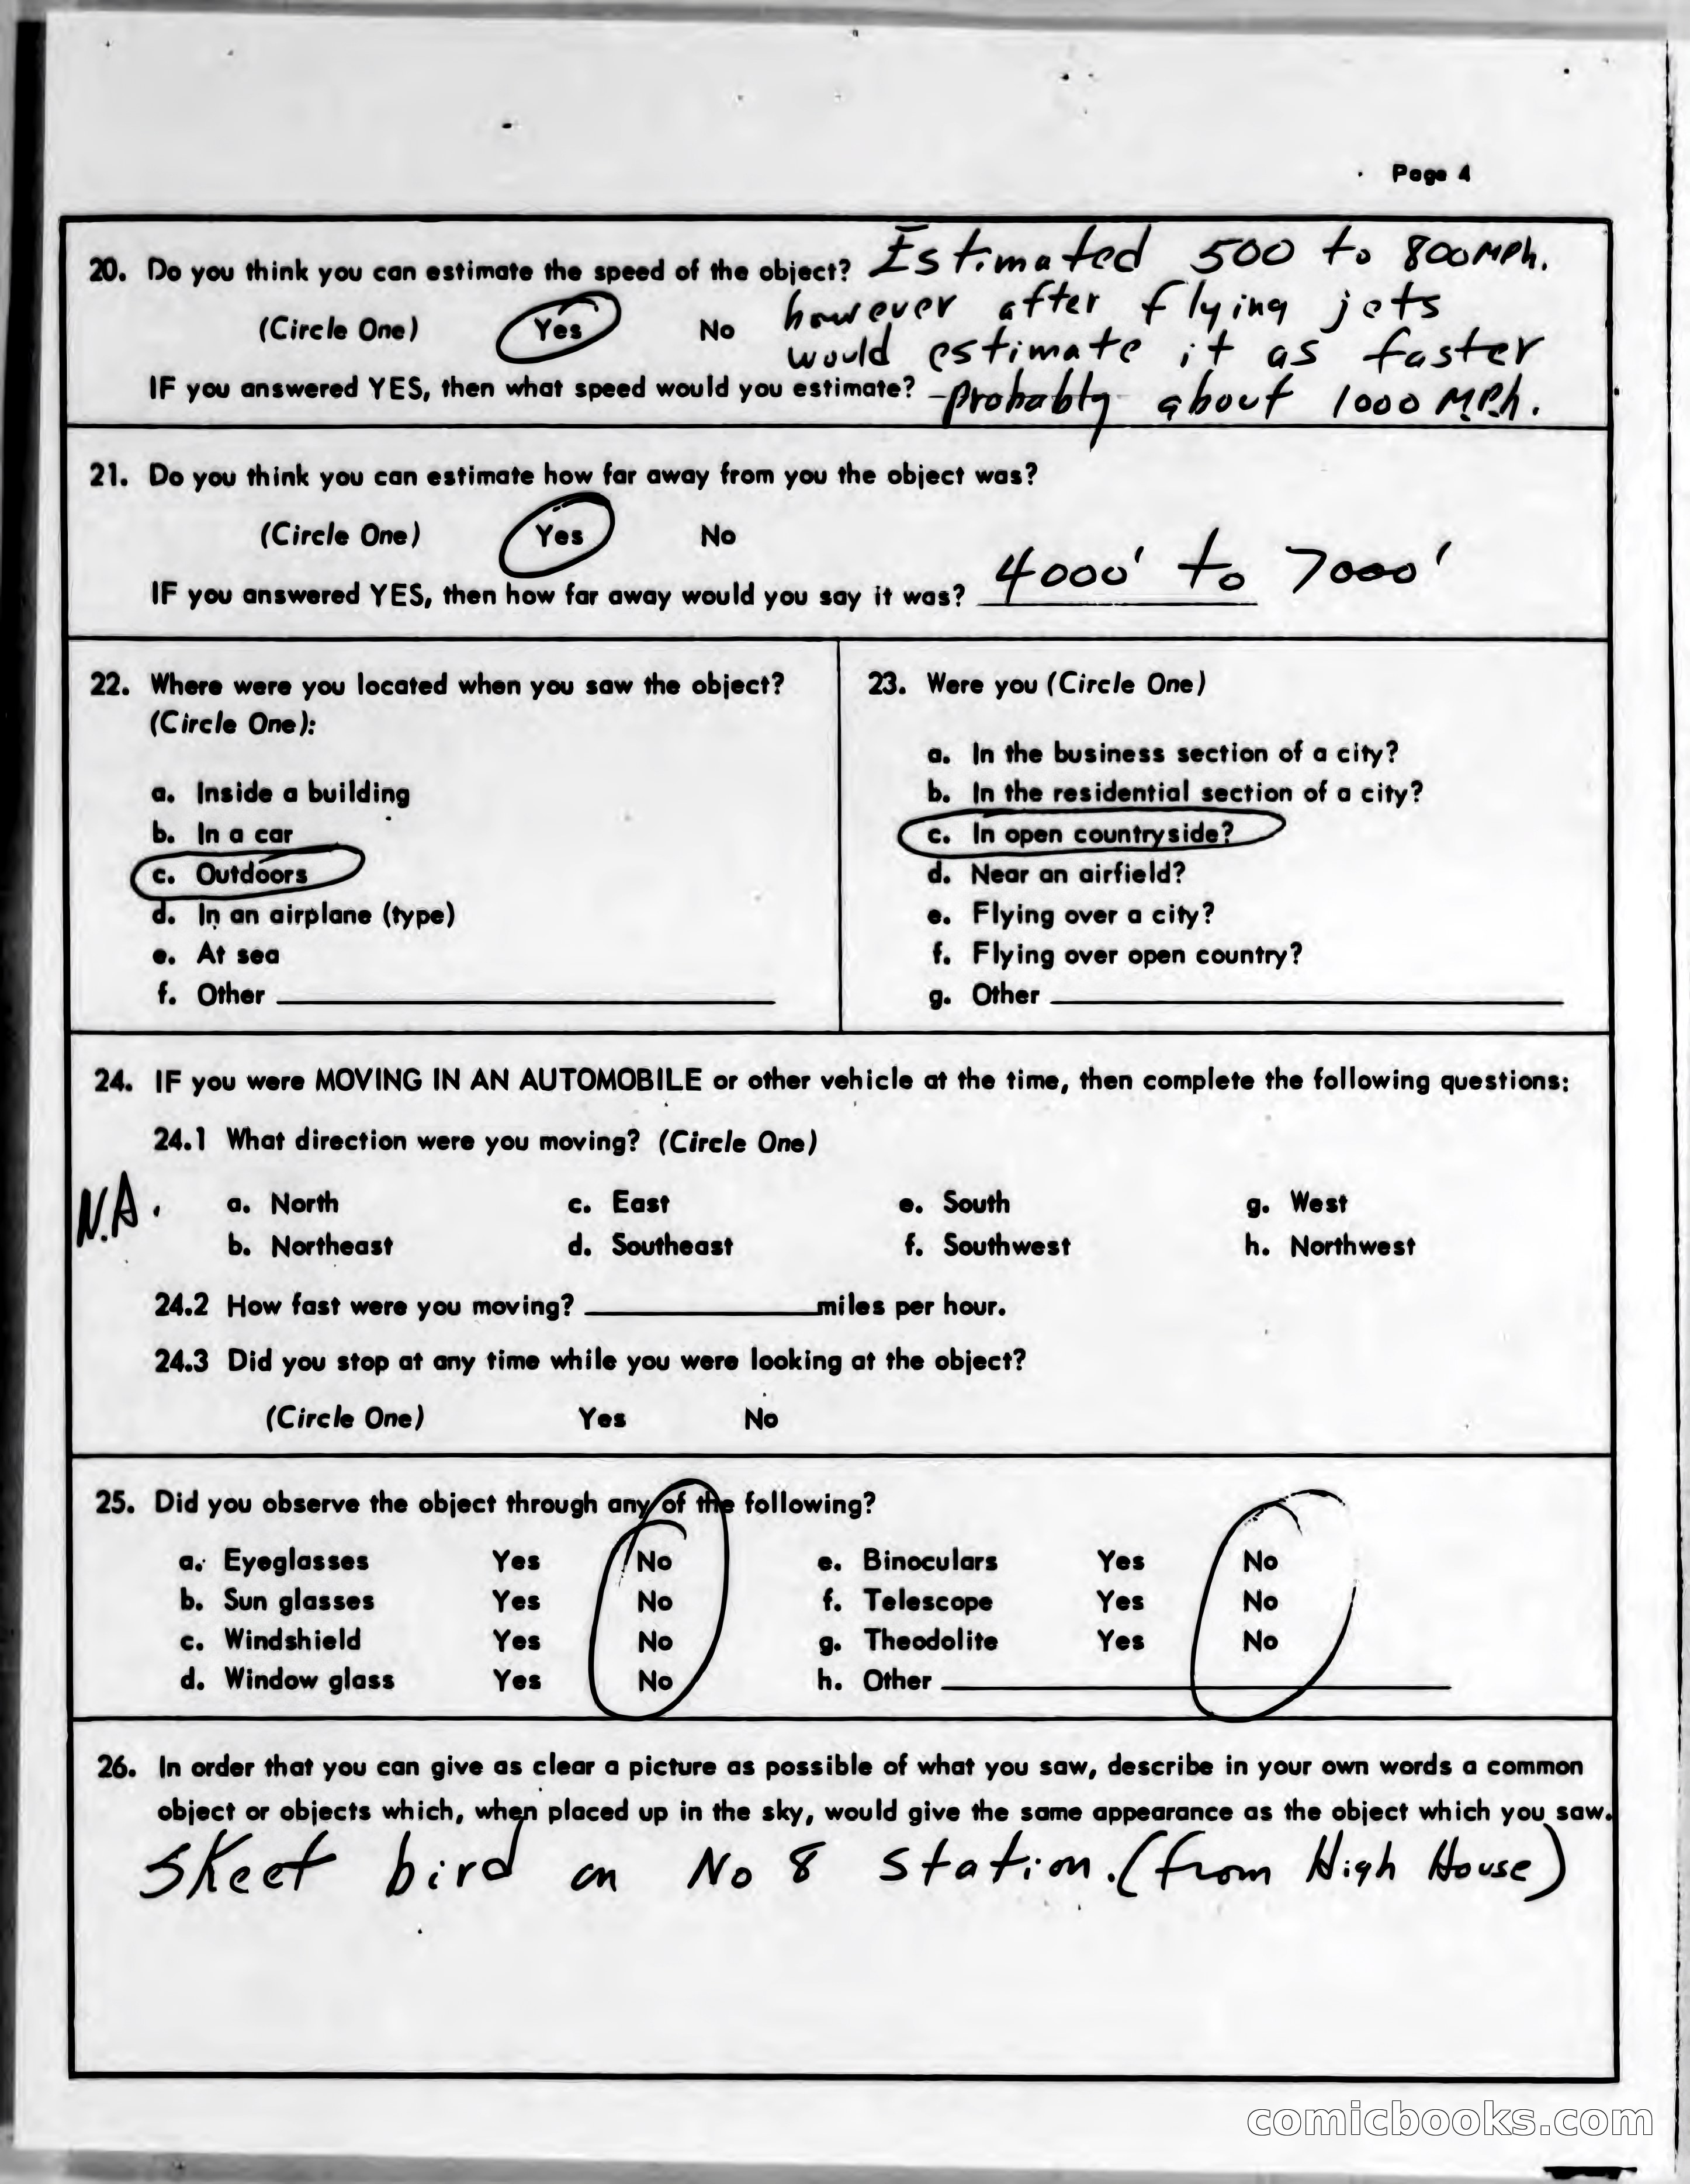 Page 4
20. Do you think you can estimate the speed of the object? Estimated 500 to 800 MPh.
however after flying jets
(Circle One) Yes No
would estimate it as faster
IF you answered YES, then what speed would you estimate? - probably about 1000 M.P.h.
21. Do you think you can estimate how far away from you the object was?
(Circle One) Yes No
IF you answered YES, then how far away would you say it was? 4000' to 7000'
22. Where were you located when you saw the object?
(Circle One):
a. Inside a building
b. In a car
c. Outdoors
d. In an airplane (type)
e. At sea
f. Other
23. Were you (Circle One)
a. In the business section of a city?
b. In the residential section of a city?
c. In open countryside?
d. Near an airfield?
e. Flying over a city?
f. Flying over open country?
g. Other
24. IF you were MOVING IN AN AUTOMOBILE or other vehicle at the time, then complete the following questions:
24.1 What direction were you moving? (Circle One)
N.A.
a. North c. East e. South g. West
b. Northeast d. Southeast f. Southwest h. Northwest
24.2 How fast were you moving? miles per hour.
24.3 Did you stop at any time while you were looking at the object?
(Circle One) Yes No
25. Did you observe the object through any of the following?
a. Eyeglasses Yes No e. Binoculars Yes No
b. Sun glasses Yes No f. Telescope Yes No
c. Windshield Yes No g. Theodolite Yes No
d. Window glass Yes No h. Other
26. In order that you can give as clear a picture as possible of what you saw, describe in your own words a common
object or objects which, when placed up in the sky, would give the same appearance as the object which you saw.
Skeet bird on No 8 station. (from High House)
comicbooks.com